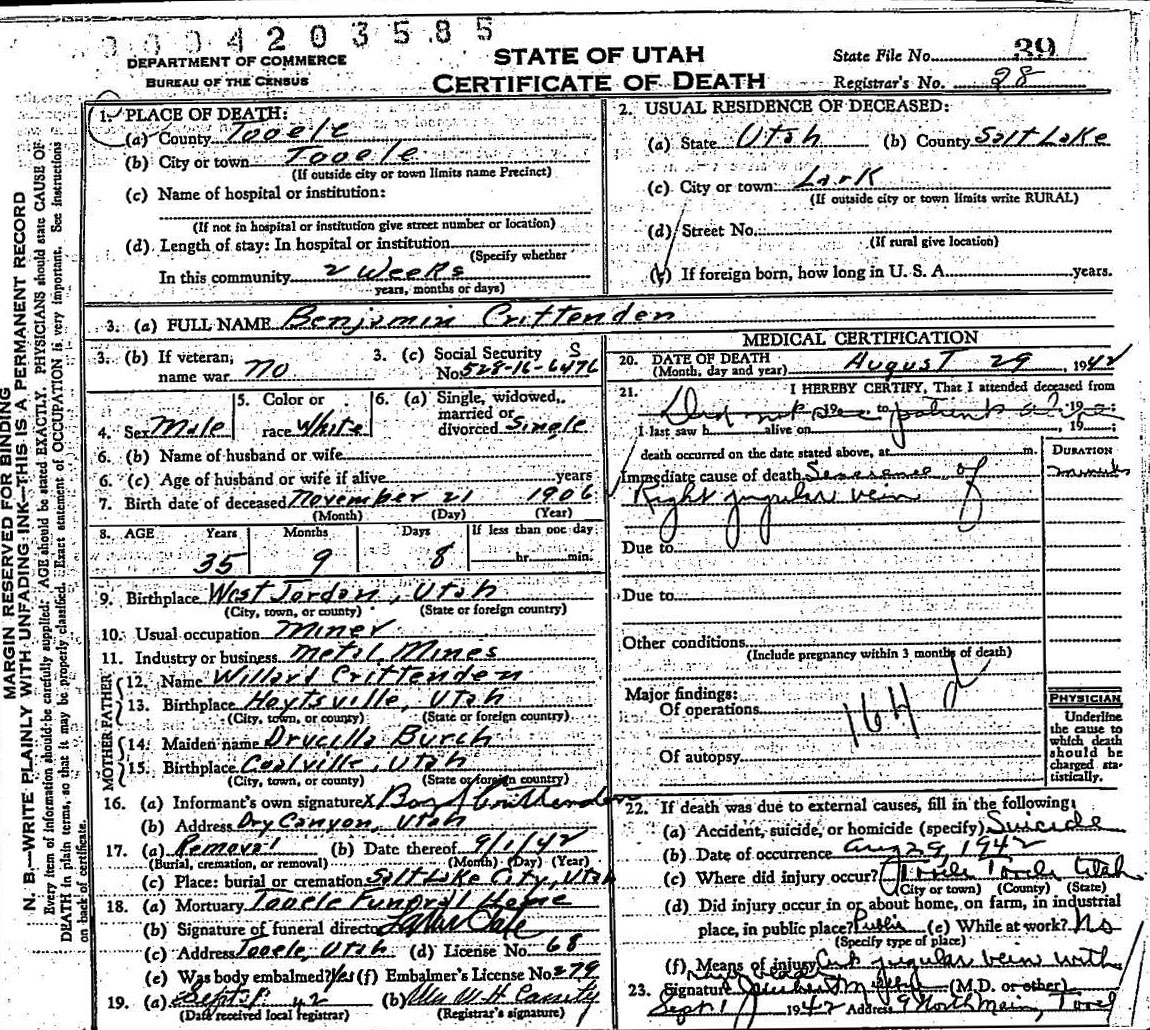 0004203585
DEPARTMENT OF COMMERCE
BUREAU OF THE CENSUS
STATE OF UTAH
CERTIFICATE OF DEATH
State File No. 39
Registrar's No. 28
MARGIN RESERVED FOR BINDING
N. B.—WRITE PLAINLY WITH UNFADING INK—THIS IS A PERMANENT RECORD
Every item of information should be carefully supplied. AGE should be stated EXACTLY. PHYSICIANS should state CAUSE OF
DEATH in plain terms, so that it may be properly classified. Exact statement of OCCUPATION is very important. See instructions
on back of certificate.
1. PLACE OF DEATH:
(a) County Tooele
(b) City or town Tooele
(If outside city or town limits name Precinct)
(c) Name of hospital or institution:
(If not in hospital or institution give street number or location)
(d) Length of stay: In hospital or institution
(Specify whether
In this community 2 Weeks
years, months or days)
2. USUAL RESIDENCE OF DECEASED:
(a) State Utah (b) County Salt Lake
(c) City or town: Lark
(If outside city or town limits write RURAL)
(d) Street No.
(If rural give location)
If foreign born, how long in U. S. A. years.
3. (a) FULL NAME Benjamin Crittenden
3. (b) If veteran, name war No
3. (c) Social Security No. 528-16-6476
4. Sex Male
5. Color or race White
6. (a) Single, widowed, married or divorced Single
6. (b) Name of husband or wife
6. (c) Age of husband or wife if alive years
7. Birth date of deceased November 21 1906
(Month) (Day) (Year)
8. AGE Years Months Days If less than one day
35 9 8 hr. min.
9. Birthplace West Jordan, Utah
(City, town, or county) (State or foreign country)
10. Usual occupation Miner
11. Industry or business Metil Mines
FATHER
12. Name Willard Crittenden
13. Birthplace Hoytsville, Utah
(City, town, or county) (State or foreign country)
MOTHER
14. Maiden name Drucilla Burch
15. Birthplace Coalville, Utah
(City, town, or county) (State or foreign country)
16. (a) Informant's own signature X Crittenden
(b) Address Dry Canyon, Utah
17. (a) Removal (b) Date thereof 9/1/42
(Burial, cremation, or removal) (Month) (Day) (Year)
(c) Place: burial or cremation Salt Lake City, Utah
18. (a) Mortuary Tooele Funeral Home
(b) Signature of funeral director
(c) Address Tooele, Utah (d) License No. 68
(e) Was body embalmed? Yes (f) Embalmer's License No. 279
19. (a) Sept. 42 (b) W. H. Cassity
(Date received local registrar) (Registrar's signature)
MEDICAL CERTIFICATION
20. DATE OF DEATH
(Month, day and year) August 29, 1942
21. I HEREBY CERTIFY, That I attended deceased from
Did not see patient alive 19
I last saw h alive on , 19 ;
death occurred on the date stated above, at m.
DURATION
Immediate cause of death Severence of minutes
Right jugular vein
Due to
Due to
Other conditions
(Include pregnancy within 3 months of death)
Major findings:
Of operations
164 d
Of autopsy
PHYSICIAN
Underline
the cause to
which death
should be
charged sta-
tistically.
22. If death was due to external causes, fill in the following:
(a) Accident, suicide, or homicide (specify) Suicide
(b) Date of occurrence Aug 29, 1942
(c) Where did injury occur? Tooele Tooele Utah
(City or town) (County) (State)
(d) Did injury occur in or about home, on farm, in industrial
place, in public place? Public (e) While at work? No
(Specify type of place)
(f) Means of injury Cut jugular vein with
razor blade
23. Signature (M.D. or other)
Sept 1 1942 Address 9 North Main, Tooele